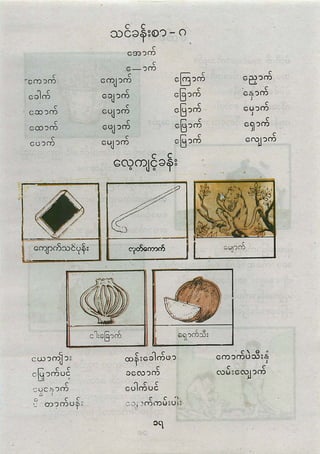 သင်ခန်းစာ - ၈
အောက်
ေ—ာက်
ကောက် ကျောက် ကြောက် ညှောက်
ခေါက် ချောက် ခြောက် နှောက်
ဆောက် ပျောက် ပြောက် မှောက်
ထောက် ဖျောက် ဖြောက် ရှောက်
ပောက် မျောက် မြောက် လျှောက်
လေ့ကျင့်ခန်း
ကျောက်သင်ပုန်း ငုတ်ကောက် မျောက်
ငါးခြောက် ရှောက်သီး
ယောက်ျား ထန်းခေါက်ဖာ ကောက်ပဲသီးနှံ
မြှောက်ပင့် ခလောက် လမ်းလျှောက်
မွှေနှောက် ပေါက်ပင်
တောက်ပန်း ချောက်ကမ်းပါး
၁၇